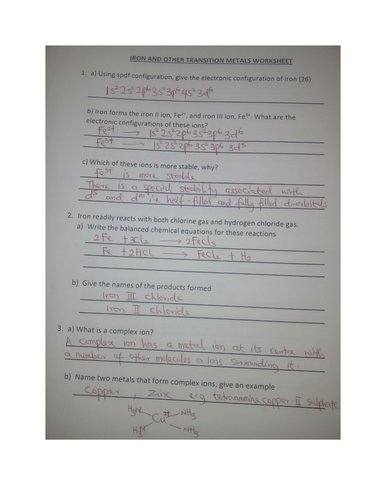 IRON AND OTHER TRANSITION METALS WORKSHEET
1. a) Using spdf configuration, give the electronic configuration of iron (26)
1s² 2s² 2p⁶ 3s² 3p⁶ 4s² 3d⁶
b) Iron forms the iron II ion, Fe²⁺, and iron III ion, Fe³⁺. What are the
electronic configurations of these ions?
Fe²⁺ → 1s² 2s² 2p⁶ 3s² 3p⁶ 3d⁶
Fe³⁺ → 1s² 2s² 2p⁶ 3s² 3p⁶ 3d⁵
c) Which of these ions is more stable, why?
Fe³⁺ is more stable
There is a special stability associated with
d⁵ and d¹⁰ i.e half-filled and fully filled d-orbitals
2. Iron readily reacts with both chlorine gas and hydrogen chloride gas.
a) Write the balanced chemical equations for these reactions
2Fe + 3Cl₂ → 2FeCl₃
Fe + 2HCl → FeCl₂ + H₂
b) Give the names of the products formed
Iron III chloride
Iron II chloride
3. a) What is a complex ion?
A complex ion has a metal ion at its centre with
a number of other molecules or ions surrounding it.
b) Name two metals that form complex ions; give an example
Copper, Zinc e.g tetraammine copper II sulphate
H₃N NH₃
Cu²⁺
H₃N NH₃